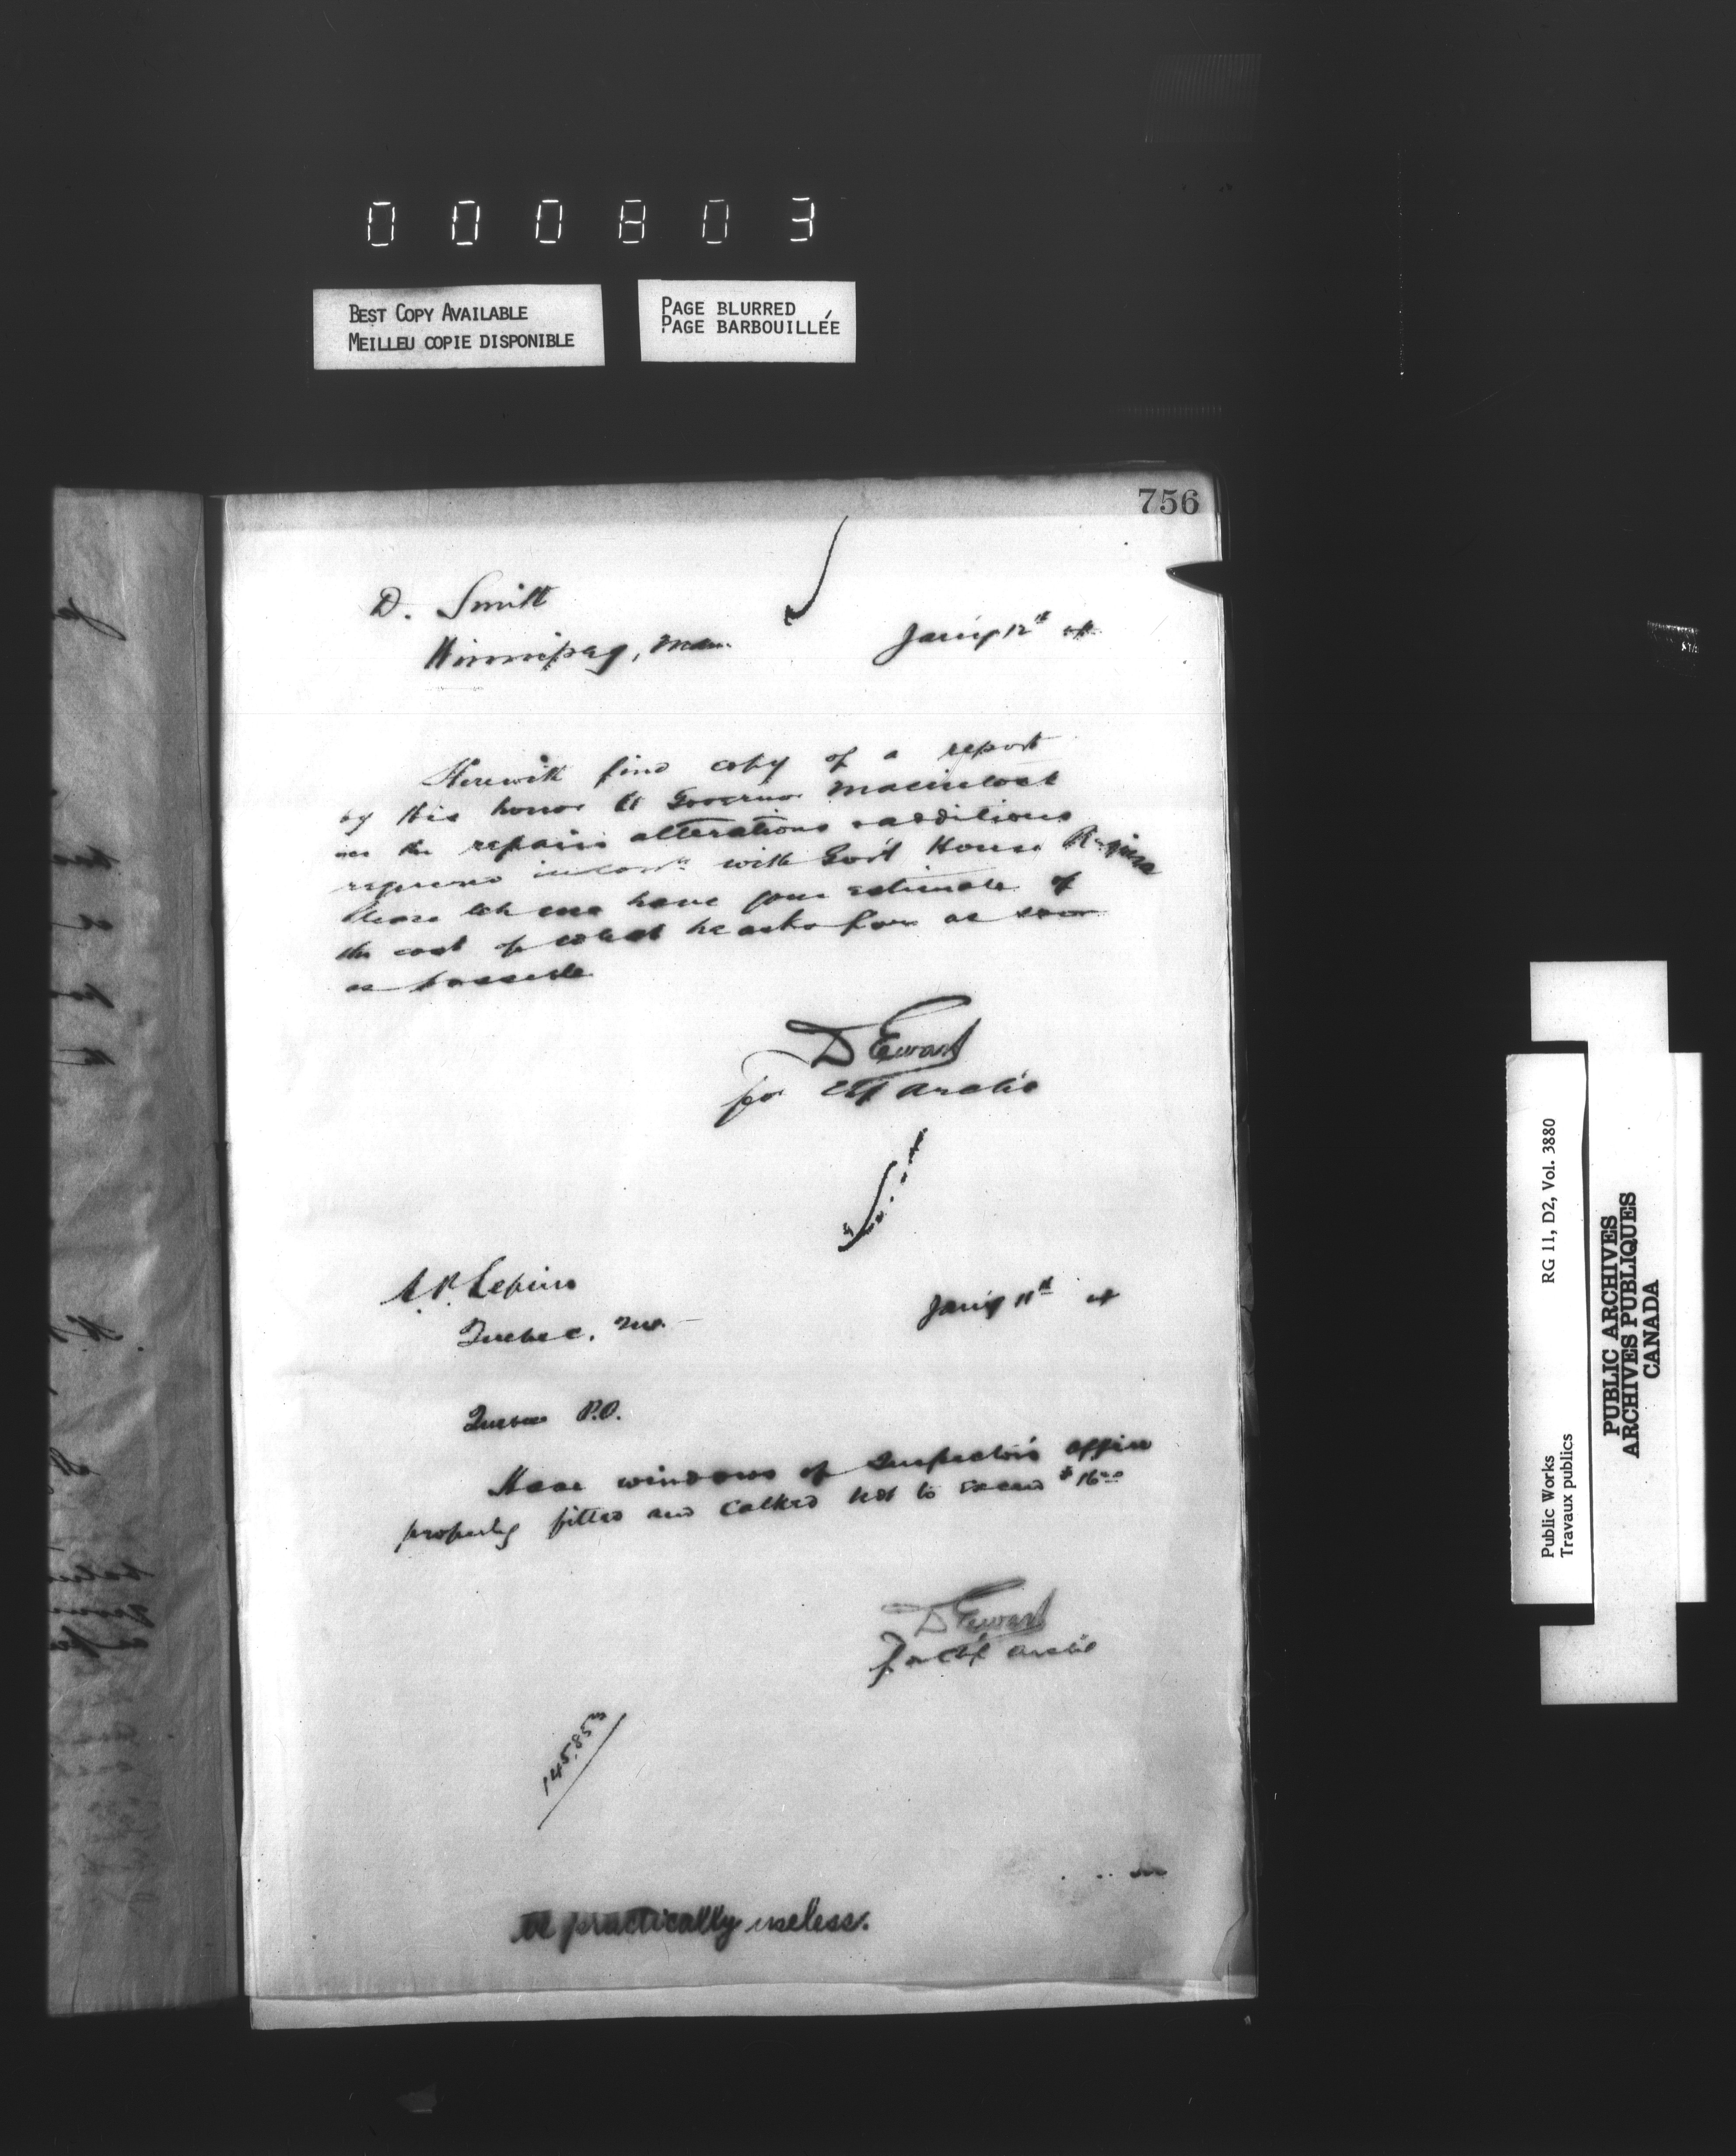 000803
BEST COPY AVAILABLE
MEILLEU COPIE DISPONIBLE
PAGE BLURRED
PAGE BARBOUILLÉE
756
D. Smith
Winnipeg, Man.
Jan'y 12th
Herewith find copy of a report
by His honor Lt Governor Macintosh
on the repairs alterations & additions
required in con'n with Gov't House Regina
Please let me have your estimate of
the cost of what he asks for as soon
as possible
D Ewart
for Chf Archt
A.P. Lepine
Quebec, Que.
Jan'y 11th
Quebec P.O.
Have windows of Inspector's office
properly fitted and calked not to exceed $16.00
D Ewart
for Chf Archt
be practically useless.
Public Works
Travaux publics
RG 11, D2, Vol. 3880
PUBLIC ARCHIVES
ARCHIVES PUBLIQUES
CANADA